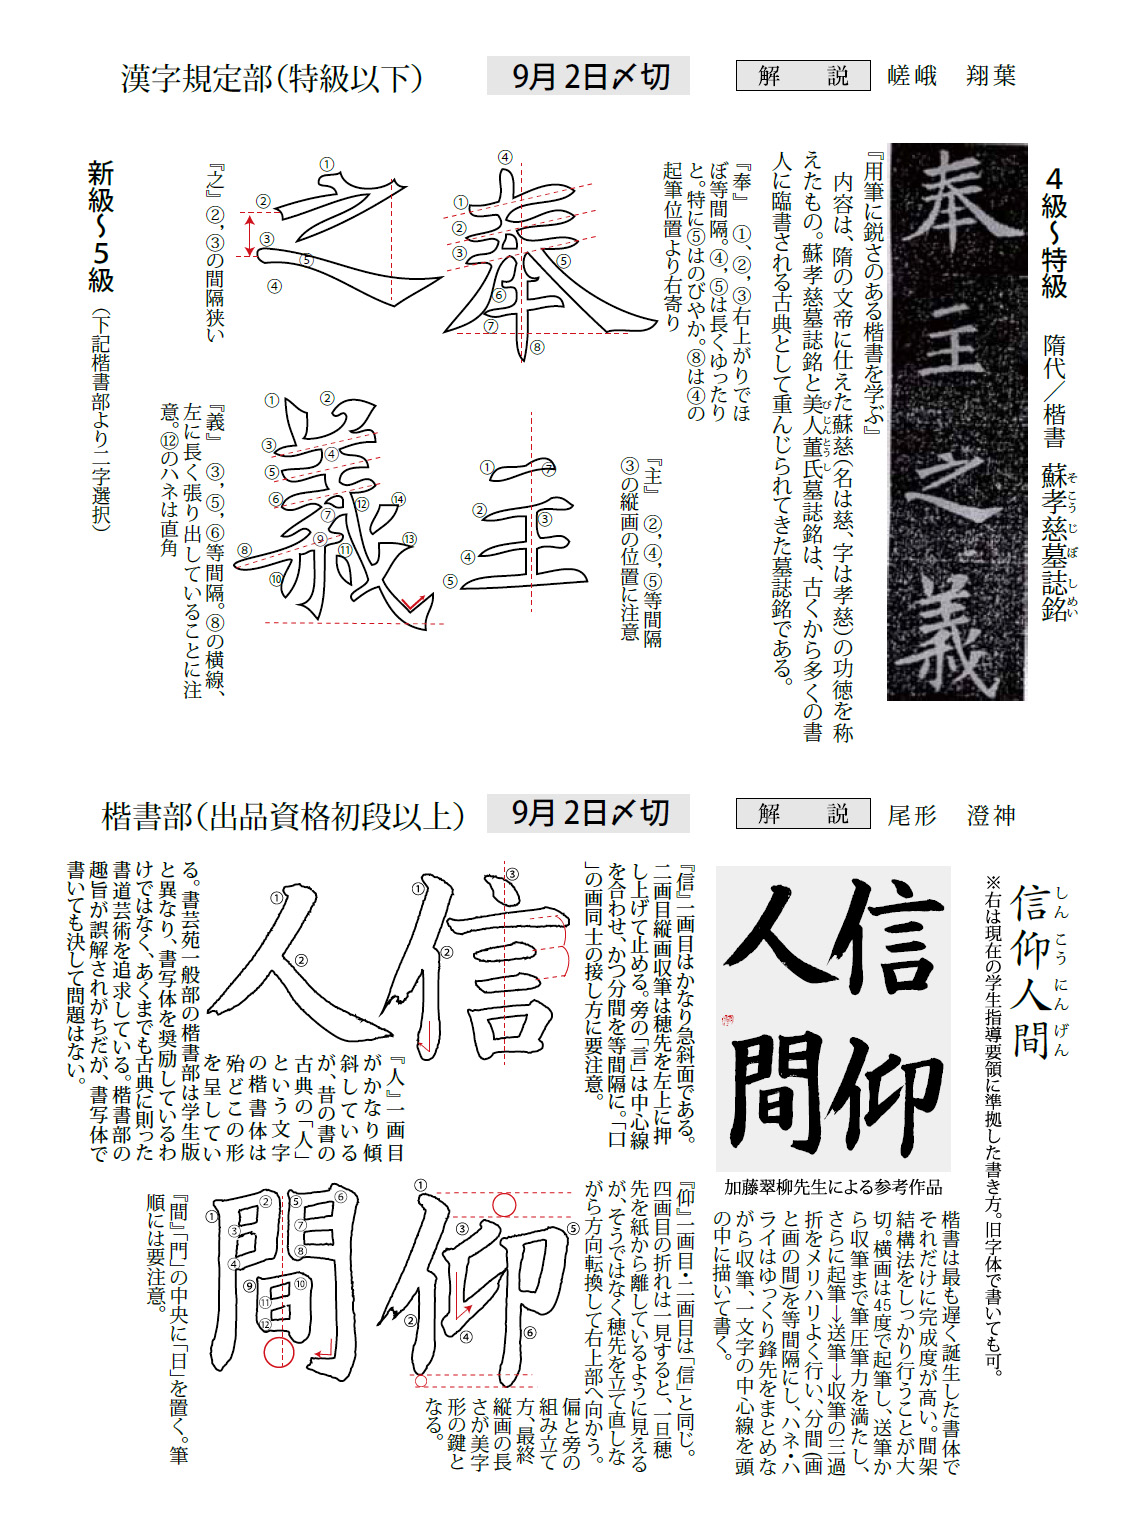 漢字規定部（特級以下）
9月2日〆切
解　説
嵯峨　翔葉
4級〜特級　隋代／楷書　蘇孝慈墓誌銘
そこうじぼしめい
奉主之義
『用筆に鋭さのある楷書を学ぶ』
内容は、隋の文帝に仕えた蘇慈（名は慈、字は孝慈）の功徳を称
えたもの。蘇孝慈墓誌銘と美人董氏墓誌銘は、古くから多くの書
びじんとうし
人に臨書される古典として重んじられてきた墓誌銘である。
『奉』　①、②，③右上がりでほ
ぼ等間隔。④，⑤は長くゆったり
と。特に⑤はのびやか。⑧は④の
起筆位置より右寄り
①
②
③
④
⑤
⑥
⑦
⑧
奉
『主』　②，④，⑤等間隔
③の縦画の位置に注意
①
②
③
④
⑤
⑦
主
①
②
③
④
⑤
之
『之』②，③の間隔狭い
①
②
③
④
⑤
⑥
⑦
⑧
⑨
⑩
⑪
⑫
⑬
⑭
義
『義』　③，⑤，⑥等間隔。⑧の横線、
左に長く張り出していることに注
意。⑫のハネは直角
新級〜5級（下記楷書部より二字選択）
楷書部（出品資格初段以上）
9月2日〆切
解　説
尾形　澄神
信仰人間
しんこうにんげん
※右は現在の学生指導要領に準拠した書き方。旧字体で書いても可。
信仰
人間
加藤翠柳先生による参考作品
楷書は最も遅く誕生した書体で
それだけに完成度が高い。間架
結構法をしっかり行うことが大
切。横画は45度で起筆し、送筆か
ら収筆まで筆圧筆力を満たし、
さらに起筆→送筆→収筆の三過
折をメリハリよく行い、分間（画
と画の間）を等間隔にし、ハネ・ハ
ライはゆっくり鋒先をまとめな
がら収筆、一文字の中心線を頭
の中に描いて書く。
『信』一画目はかなり急斜面である。
二画目縦画収筆は穂先を左上に押
し上げて止める。旁の「言」は中心線
を合わせ、かつ分間を等間隔に。「口
」の画同士の接し方に要注意。
①
②
③
信
『仰』一画目・二画目は「信」と同じ。
四画目の折れは一見すると、一旦穂
先を紙から離しているように見える
が、そうではなく穂先を立て直しな
がら方向転換して右上部へ向かう。
偏と旁の
組み立て
方、最終
縦画の長
さが美字
形の鍵と
なる。
①
②
③
④
⑤
⑥
仰
①
②
人
『人』一画目
がかなり傾
斜している
が、昔の書の
古典の「人」
という文字
の楷書体は
殆どこの形
を呈してい
る。書芸苑一般部の楷書部は学生版
と異なり、書写体を奨励しているわ
けではなく、あくまでも古典に則った
書道芸術を追求している。楷書部の
趣旨が誤解されがちだが、書写体で
書いても決して問題はない。
①
②
③
④
⑤
⑥
⑦
⑧
⑨
⑩
⑪
⑫
間
『間』「門」の中央に「日」を置く。筆
順には要注意。